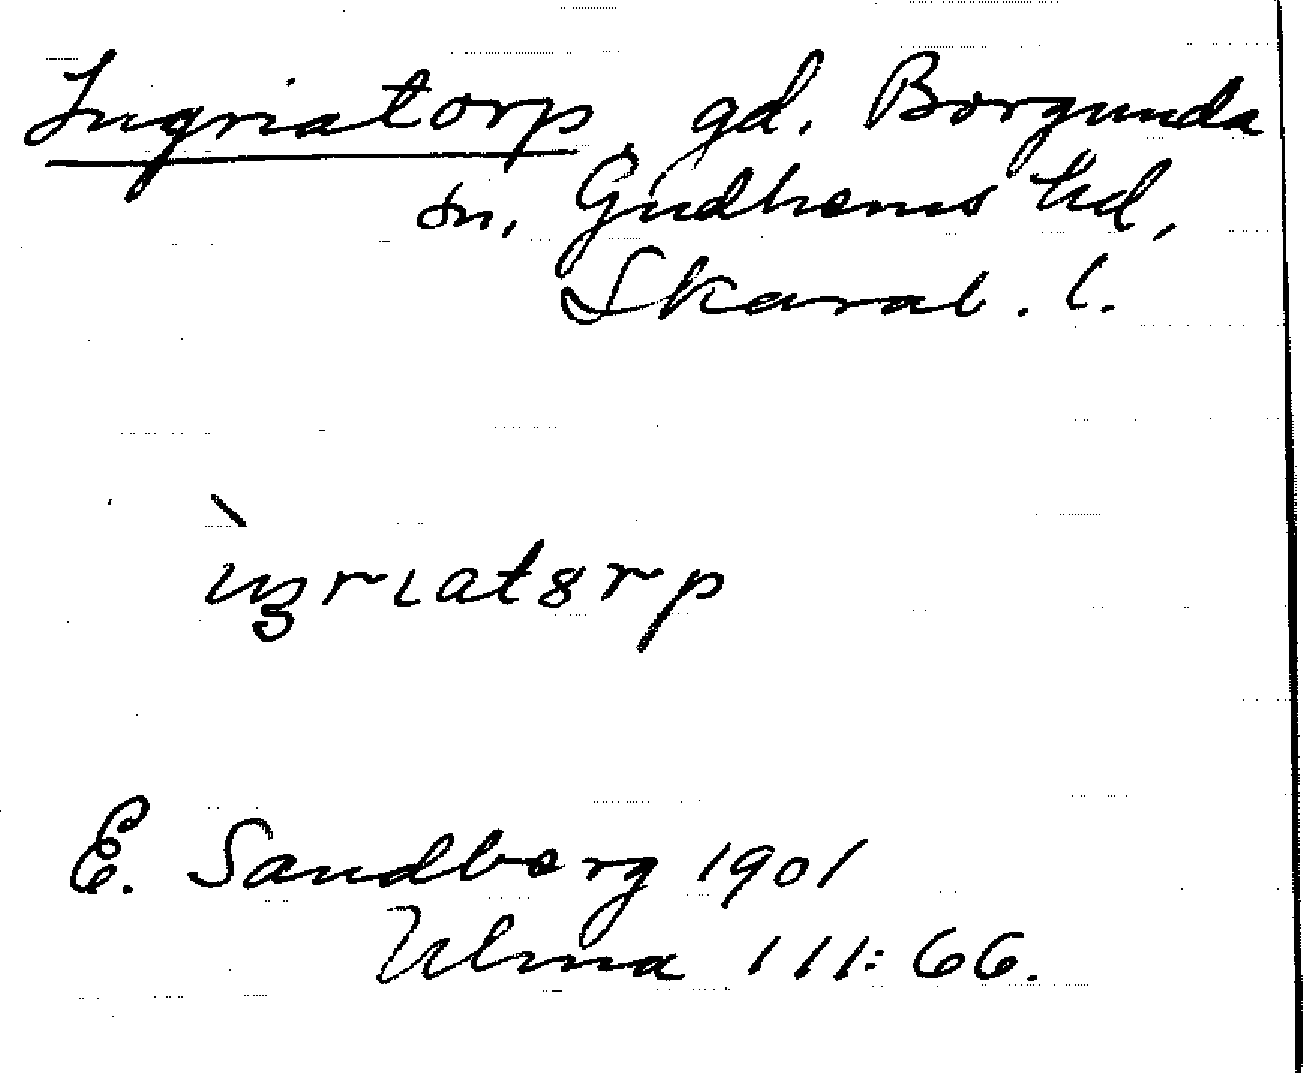 Ingriatorp gd. Borgunda
sn, Gudhems hd,
Skarab. l.
ìŋriatȣrp
E. Sandberg 1901
Ulma 111:66.